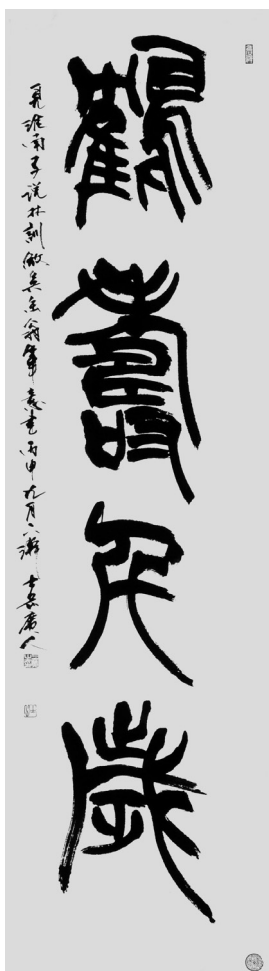 鶴壽千歲
見淮南子說林訓倣吳缶翁筆意書丙申九月